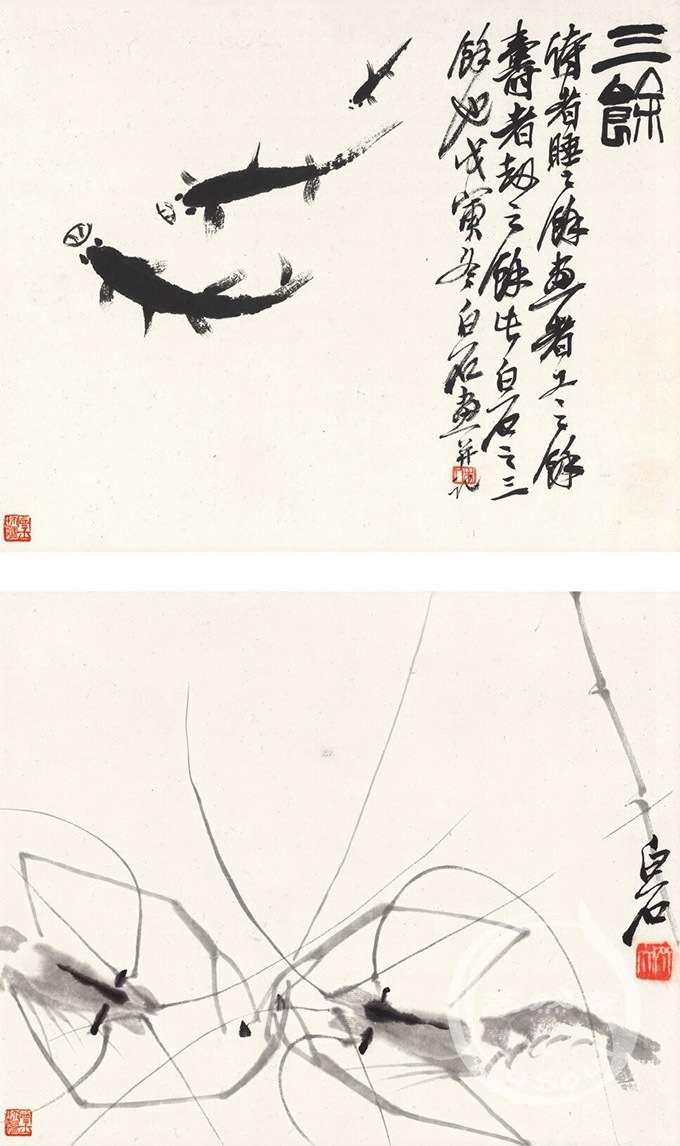 三餘
詩者睡之餘畫者工之餘
壽者劫之餘此白石之三
餘也戊寅冬白石畫并記
白石